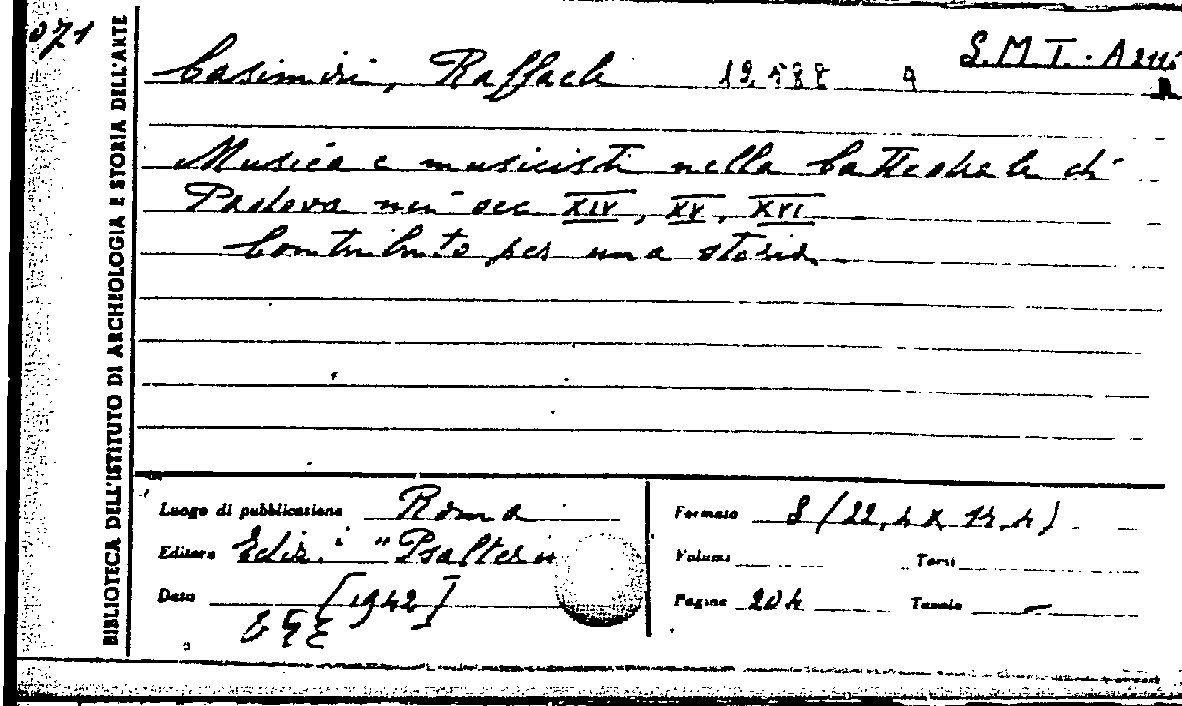 071
S.M.T. A 2116
Casimiri, Raffaele 19.588 q
Musica e musicisti nella Cattedrale di
Padova nei sec XIV, XV, XVI
Contributo per una storia.
BIBLIOTECA DELL'ISTITUTO DI ARCHEOLOGIA E STORIA DELL'ARTE
Luogo di pubblicazione Roma
Editore Ediz. "Psalterium
Data [1942]
Formato 8 (22,4 x 14,4)
Volumi Tomi
Pagine 204 Tavole –